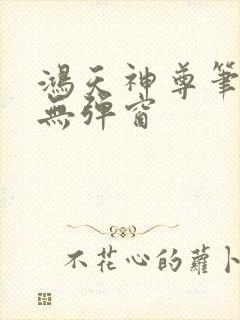 鴻天神尊筆
無彈窗
不花心的蘿卜